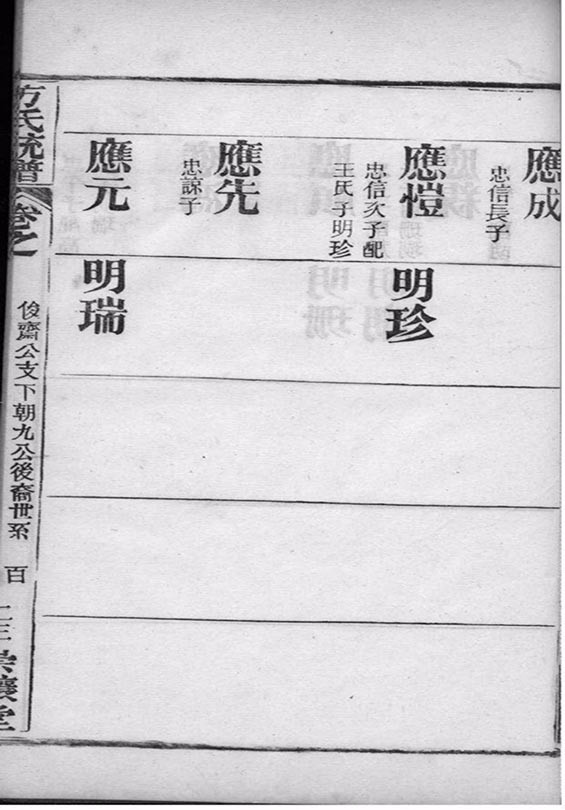 應成
忠信長子
應愷
忠信次子配
王氏子明珍
明珍
應先
忠諒子
應元
明瑞
方氏統譜
卷之
俊齋公支下朝九公後裔世系
百